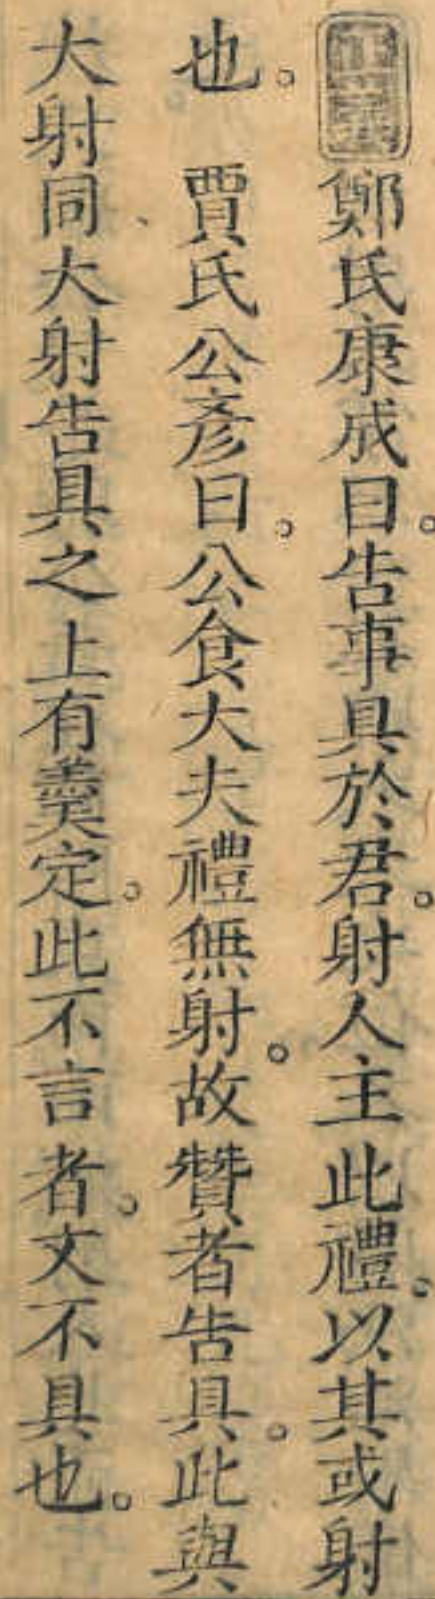 鄭氏康成曰。告事具於君。射人主此禮。以其或射
也。　賈氏公彥曰。公食大夫禮無射。故贊者告具。此與
大射同大射告具之上有羹定。此不言者。文不具也。